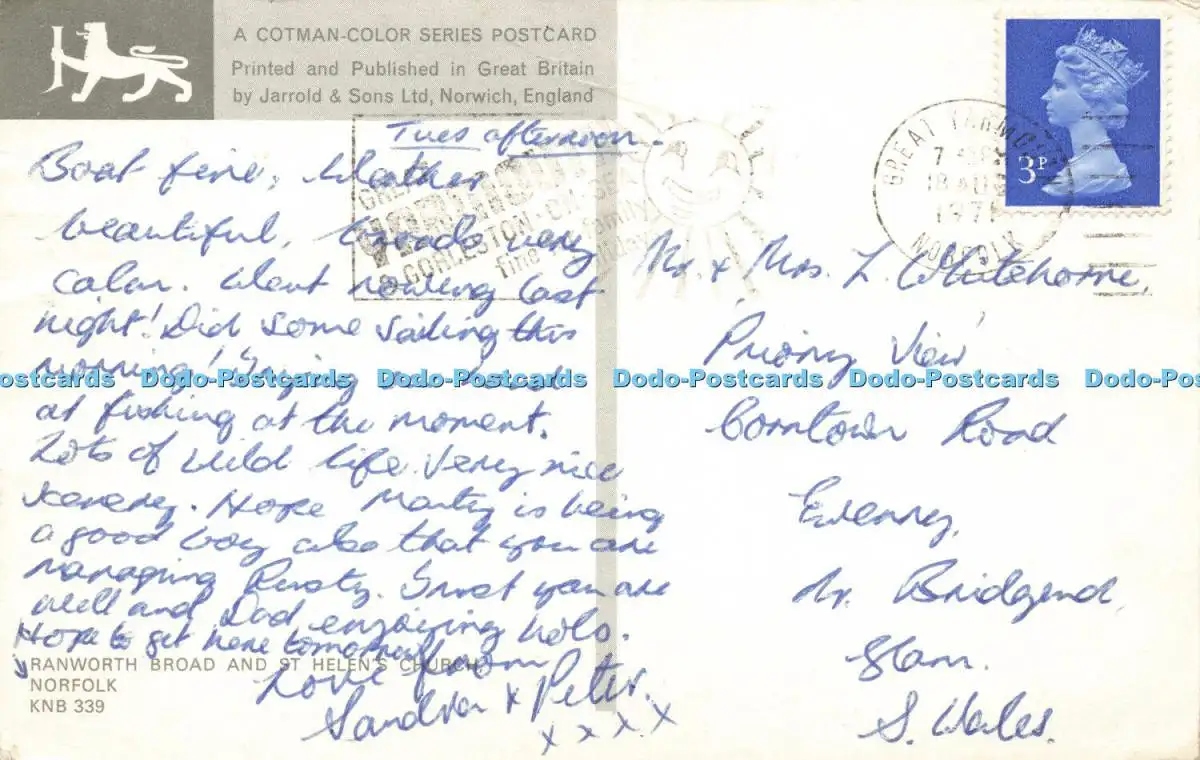 A COTMAN-COLOR SERIES POSTCARD
Printed and Published in Great Britain
by Jarrold & Sons Ltd, Norwich, England
Tues afternoon.
Boat fine, Weather
beautiful, Broads very
calm. Went rowing last
night! Did some sailing this
morning! Trying our hand
at fishing at the moment.
Lots of wild life. Very nice
scenery. Hope Monty is being
a good boy also that you are
managing Rusty. Trust you are
well and Dad enjoying hols.
Hope to get here tomorrow
Love from
Sandra + Peter.
x x x x
RANWORTH BROAD AND ST HELEN'S CHURCH
NORFOLK
KNB 339
3P
GREAT YARMO
18 AUG
1971
NORFOLK
GORLESTON-ON-SEA
Mr. + Mrs. L. Whitehorne,
'Priory View'
Corntown Road
Ewenny,
Nr. Bridgend,
Glam.
S. Wales.
Dodo-Postcards Dodo-Postcards Dodo-Postcards Dodo-Postcards